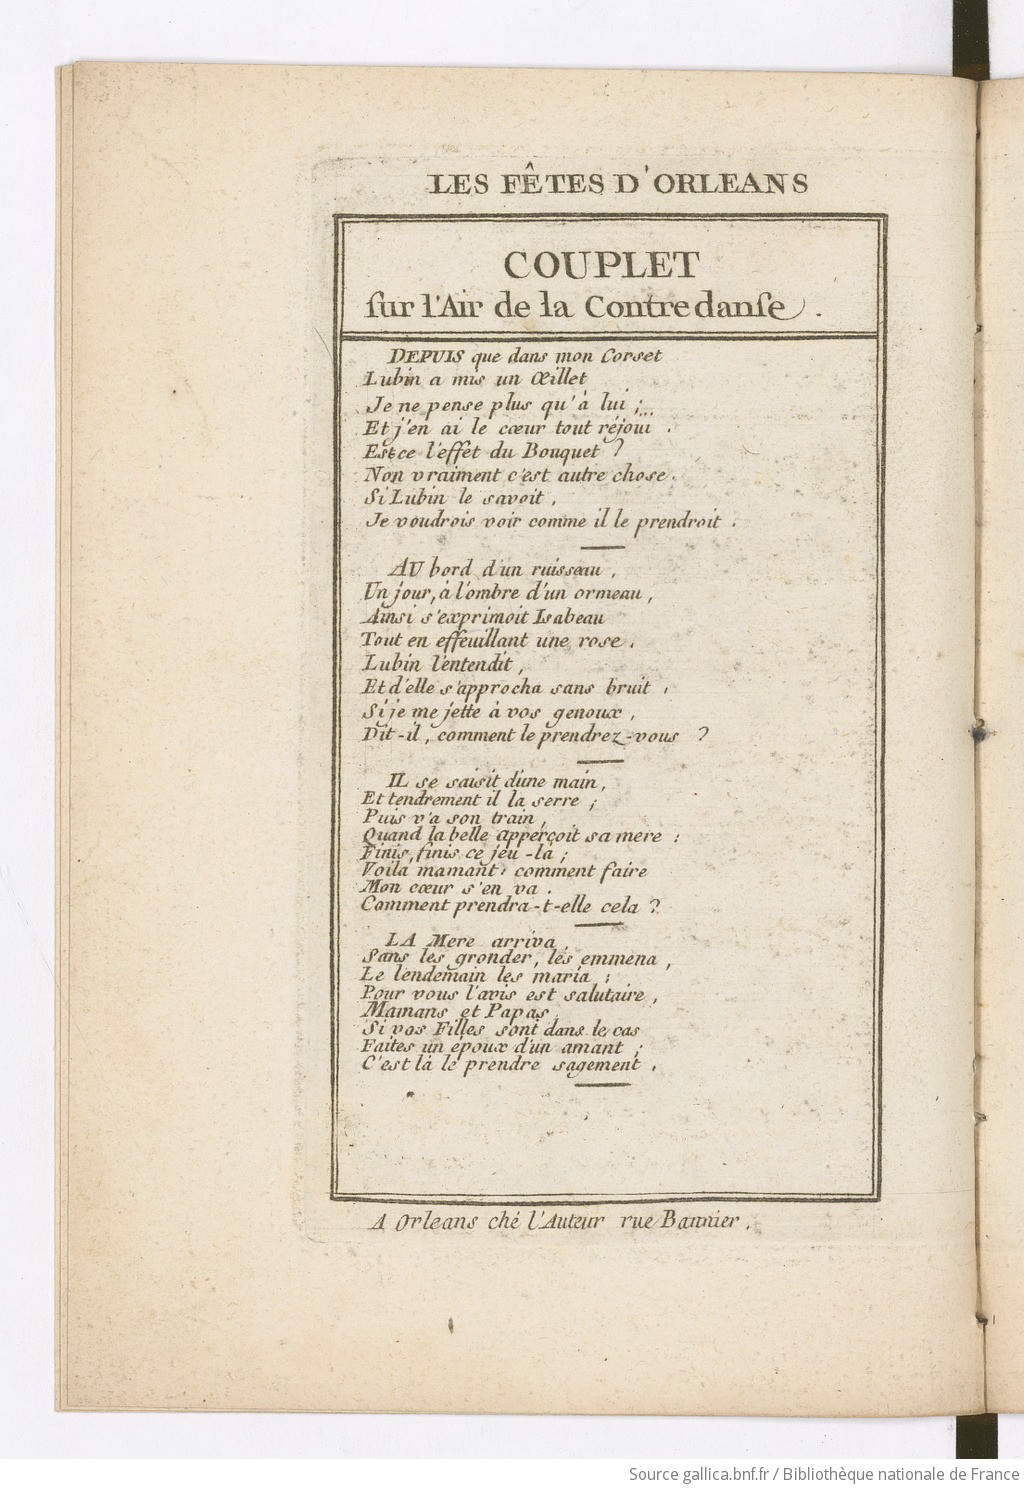 LES FÊTES D'ORLEANS
COUPLET
sur l'Air de la Contredanse.
DEPUIS que dans mon Corset
Lubin a mis un Œillet
Je ne pense plus qu'à lui ;...
Et j'en ai le cœur tout réjoui .
Estce l'effet du Bouquet ?
Non vraiment c'est autre chose.
Si Lubin le savoit ,
Je voudrois voir comme il le prendroit .
AU bord d'un ruisseau ,
Un jour, à l'ombre d'un ormeau ,
Ainsi s'exprimoit Isabeau
Tout en effeuillant une rose .
Lubin l'entendit ,
Et d'elle s'approcha sans bruit ,
Si je me jette à vos genoux ,
Dit-il , comment le prendrez-vous ?
IL se saisit d'une main ,
Et tendrement il la serre ;
Puis v'a son train ,
Quand la belle apperçoit sa mere :
Finis, finis ce jeu-là ;
Voila mamant : comment faire
Mon cœur s'en va .
Comment prendra-t-elle cela ?
LA Mere arriva ,
Sans les gronder, les emmena ,
Le lendemain les maria ;
Pour vous l'avis est salutaire ,
Mamans et Papas ,
Si vos Filles sont dans le cas
Faites un époux d'un amant ;
C'est là le prendre sagement .
A Orleans ché l'Auteur rue Bannier .
Source gallica.bnf.fr / Bibliothèque nationale de France